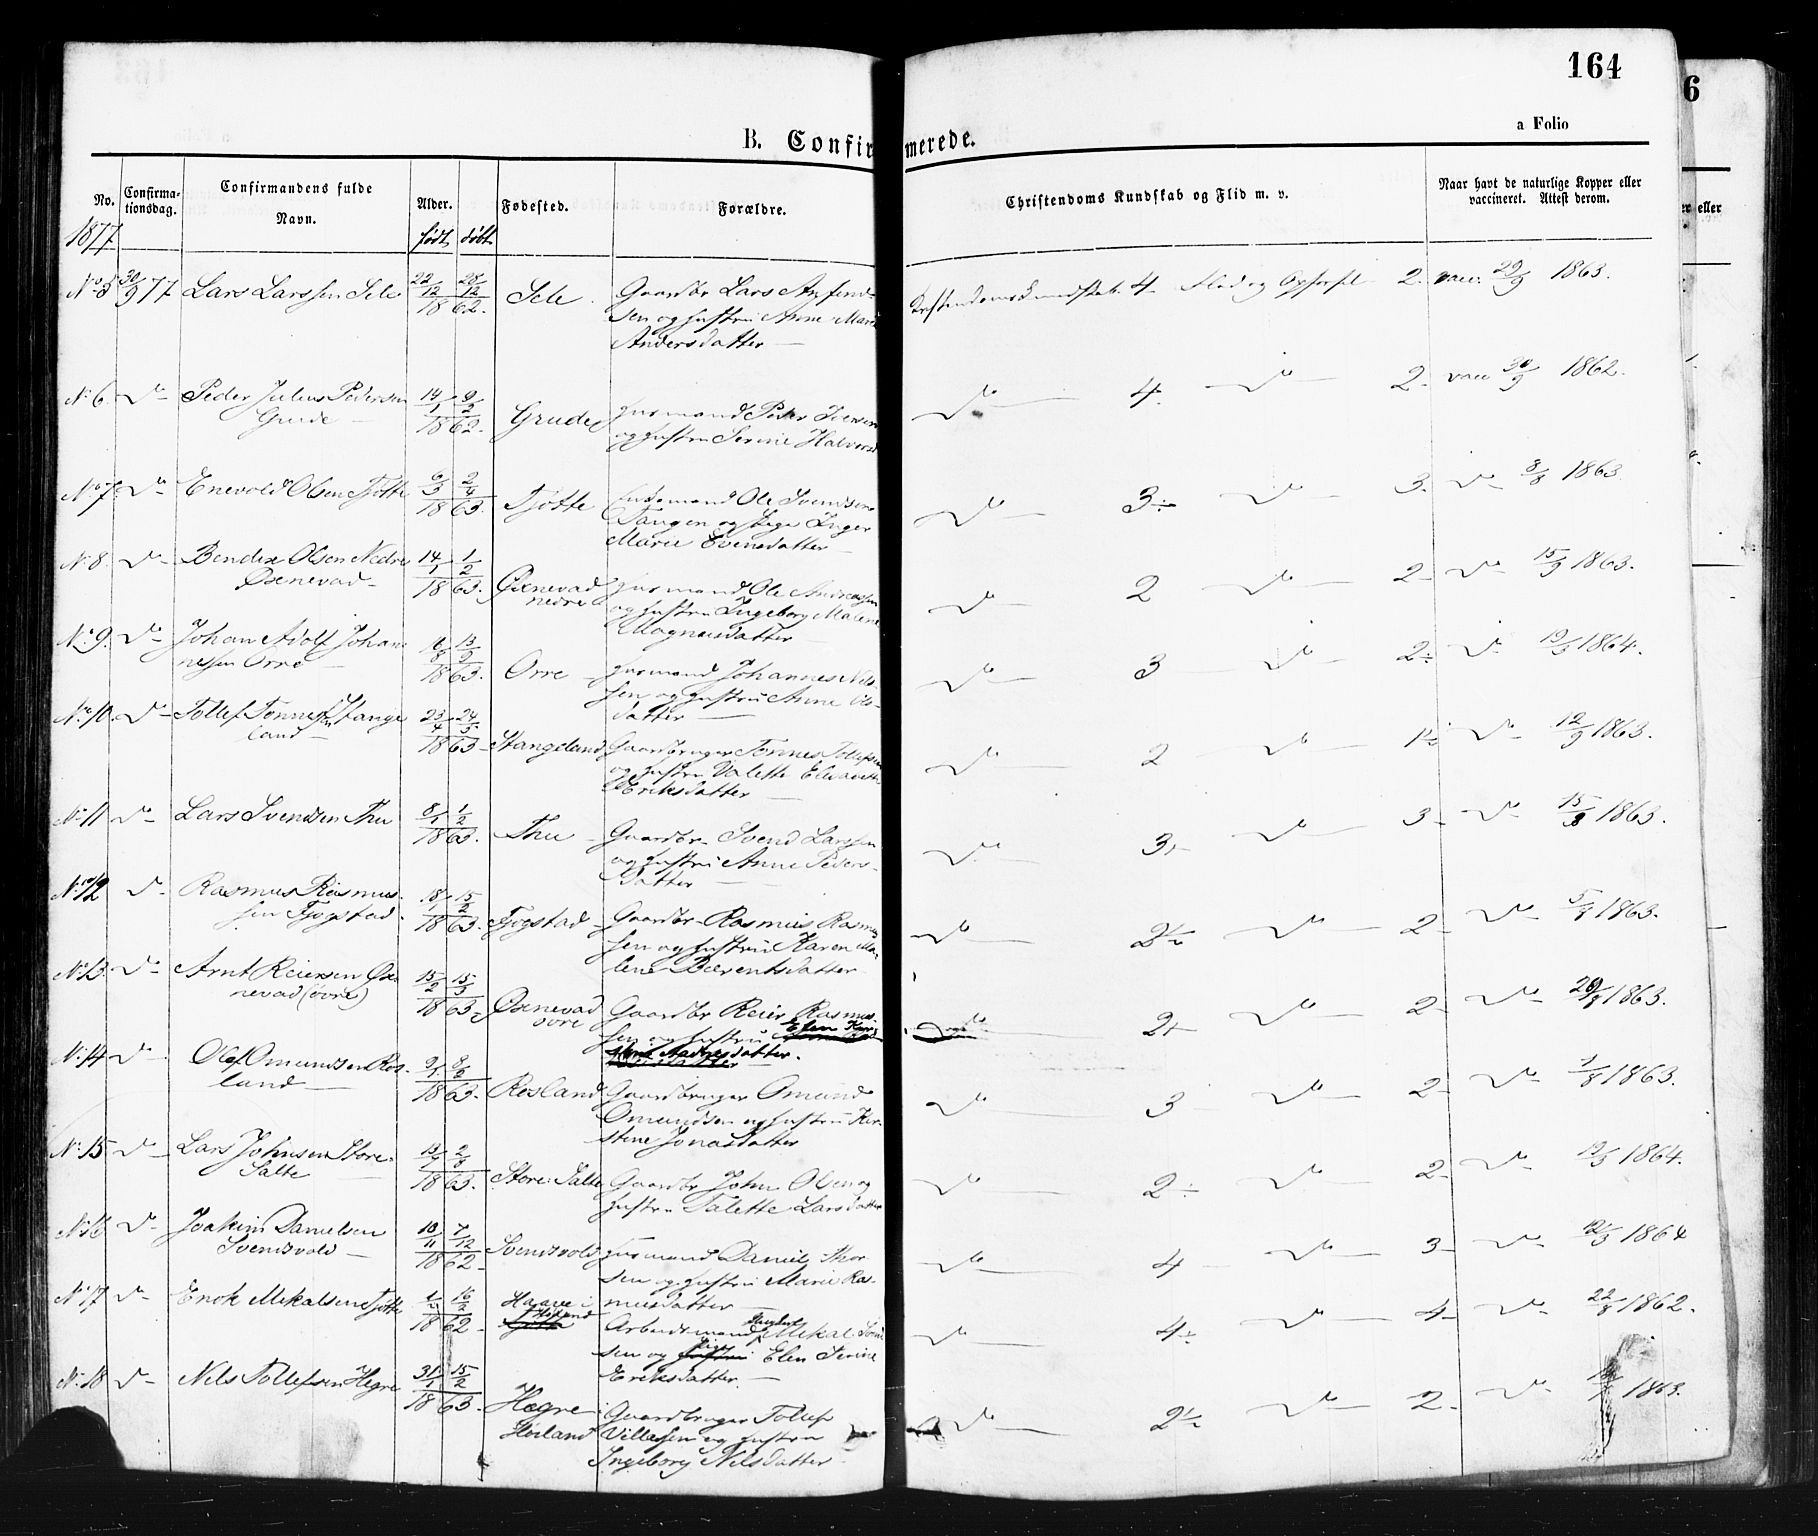 164
6
a Folio
B. Confirmerede.
No. Confirmationsdag. Confirmandens fulde Navn. Alder. Fødested. Forældre. Christendoms Kundskab og Flid m. v. Naar havt de naturlige Kopper eller vaccineret. Attest derom.
er eller
1877 født døbt
No 5 30/9 77 Lars Larssen Sele 22/12 28/12 1862. Sele Gaardbr Lars
sen og hustru Anne Marie
Andersdatter
Kristendomskundskab. 4 Flid og Opførsel 2. vacc. 29/9 1863.
No 6 do Peder Julius Pedersen
Grude
14/1 9/2 1862. Grude Husmand Peder Iversen
og hustru Serine Halvors
do 4. do 2. vacc 30/9 1862.
No 7 do Enevold Olsen Tjøtte 6/3 2/4 1863. Tjøtte Husmand Ole Svendsen
Tangen og Inger
Marie Svensdatter
do 3÷ do 3. do 8/8 1863
No 8 do Bendix Olsen Nedre
Øxnevad
14/1 1/2 1863. Øxnevad
nedre
Husmand Ole Andreassen
og hustru Ingeborg Malene
Magnusdatter
do 2 do 2 do 15/9 1863.
No 9. do Johan Adolf Johan
nessen Orre
16/8 13/9 1863. Orre Husmand Johannes Nils
sen og hustru Anne Ols
datter
do 3 do 2÷ do 19/3 1864.
No 10. do Tollef Tønnessen Stange
land
23/4 24/5 1863 Stangeland Gaardbruger Tønnes Tollefsen
og hustru Valette Elisabeth
Eriksdatter
do 2 do 1½ do 12/9 1863.
No 11 do Lars Svendsen Thu 8/1 1/2 1863. Thu Gaardbr Svend Larssen
og hustru Anne Peders-
datter
do 3 do 3 do 15/8 1863.
No 12 do Rasmus Rasmus-
sen Fjogstad
18/1 15/2 1863. Fjogstad Gaardbr Rasmus Rasmus
sen og hustru Karen Ma-
lene Berentsdatter
do 2½ do 2 do 5/8 1863.
No 13 do Arnt Reiersen Øx
nevad (øvre)
15/2 15/3 1863. Øxnevad
øvre
Gaardbr Reier Rasmus-
sen og hustru Elen Kir
stine Andreasdatter.
do 2 do 2 do 29/8 1863.
No 14 do Olaf Omundsen Ros-
land
9/1 8/2 1863. Rosland Gaardbruger Omund
Omundsen og hustru Kir-
stine Jonasdatter
do 3 do 2 do 1/8 1863.
No 15 do Lars Johnsen Store-
Salte
13/7 2/8 1863. Store Salte Gaardbr John Olsen og
hustru Talette Larsdatter
do 2÷ do 2 do 19/3 1864.
No 16 do Joakim Danielsen
Svendsvold
10/11 7/12 1862 Svendsvold Husmand Daniel Thor
sen og hustru Marie Ras-
musdatter
do 4 do 3 do 12/3 1864
No 17 do Enok Mikalsen Tjøtte 16/2 1862 Haave i
Arbeidsmand Mikal
sen og Elen Serine
Eriksdatter.
do 4÷ do 4 do 22/8 1862.
No 18 do Nils Tollefsen Hegre 31/1 15/2 1863. Hegre
Høiland
Gaardbruger Tollef
Villassen og hustru
Ingeborg Nilsdatter
do 2½ do 2 do 1863.